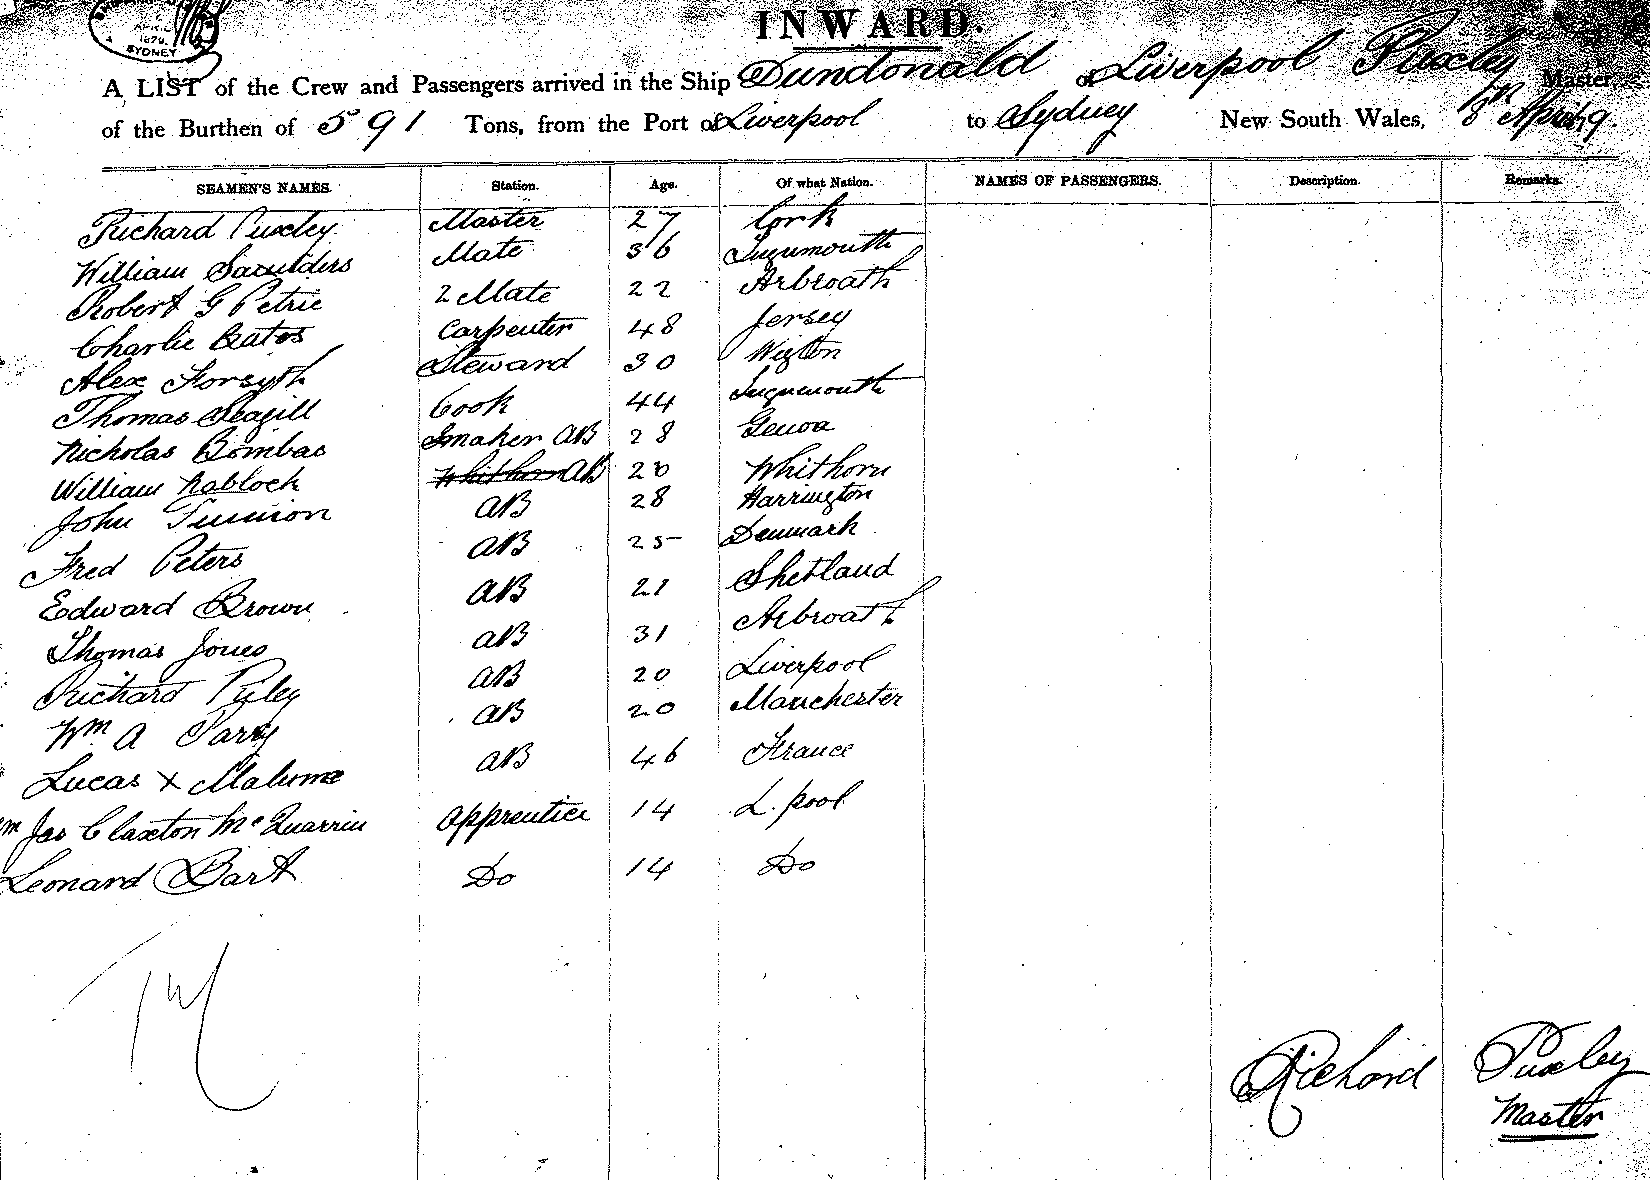 SYDNEY
INWARD.
A LIST of the Crew and Passengers arrived in the Ship Dundonald of Liverpool Puxley Master
of the Burthen of 591 Tons, from the Port of Liverpool to Sydney New South Wales, 8th April 79
SEAMEN'S NAMES. Station. Age. Of what Nation. NAMES OF PASSENGERS. Description. Remarks.
Richard Puxley Master 27 Cork
William Saunders Mate 36
Robert G Petrie 2 Mate 22 Arbroath
Charlie Bates Carpenter 48 Jersey
Alex Forsyth Steward 30 Wigton
Thomas Seagill Cook 44
Nicholas Bombas Smaker AB 28 Genoa
William Nablock Whithorn AB 20 Whithorn
John AB 28 Harrington
Fred Peters AB 25 Denmark
Edward Brown AB 21 Shetland
Thomas Jones AB 31 Arbroath
Richard Pyley AB 20 Liverpool
Wm A Parry AB 20 Manchester
Lucas x Malume AB 46 France
Jas Claxton McQuarrie Apprentice 14 L.pool
Leonard Dart Do 14 Do
Richard Puxley
Master